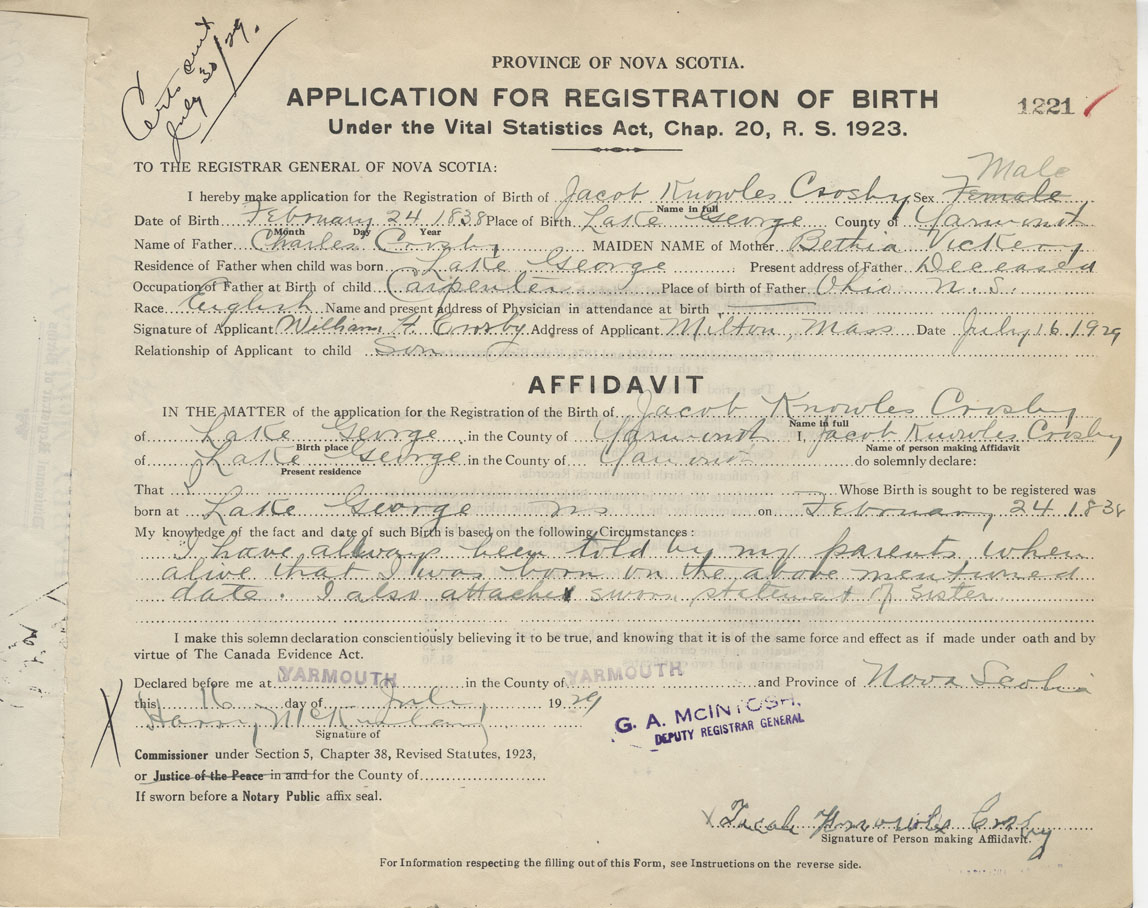 Certs sent
July 30/29.
PROVINCE OF NOVA SCOTIA.
APPLICATION FOR REGISTRATION OF BIRTH
1221
Under the Vital Statistics Act, Chap. 20, R. S. 1923.
TO THE REGISTRAR GENERAL OF NOVA SCOTIA:
Male
I hereby make application for the Registration of Birth of Jacob Knowles Crosby Sex Female
Name in full
Date of Birth February 24 1838 Place of Birth Lake George County of Yarmouth
Month Day Year
Name of Father Charles Crosby MAIDEN NAME of Mother Bethia Vickery
Residence of Father when child was born Lake George Present address of Father Deceased
Occupation of Father at Birth of child Carpenter Place of birth of Father Ohio N.S.
Race English Name and present address of Physician in attendance at birth
Signature of Applicant William H. Crosby Address of Applicant Milton, Mass Date July 16 1929
Relationship of Applicant to child Son
AFFIDAVIT
IN THE MATTER of the application for the Registration of the Birth of Jacob Knowles Crosby
Name in full
of Lake George in the County of Yarmouth I, Jacob Knowles Crosby
Birth place Name of person making Affidavit
of Lake George in the County of Yarmouth do solemnly declare:
Present residence
That I Whose Birth is sought to be registered was
born at Lake George NS on February 24 1838
My knowledge of the fact and date of such Birth is based on the following Circumstances:
I have always been told by my parents when
alive that I was born on the above mentioned
date. I also attach sworn statement of sister
I make this solemn declaration conscientiously believing it to be true, and knowing that it is of the same force and effect as if made under oath and by
virtue of The Canada Evidence Act.
Declared before me at YARMOUTH in the County of YARMOUTH and Province of Nova Scotia
this 16 day of July 1929
G. A. McINTOSH,
DEPUTY REGISTRAR GENERAL
Signature of
Commissioner under Section 5, Chapter 38, Revised Statutes, 1923,
or Justice of the Peace in and for the County of
If sworn before a Notary Public affix seal.
X Jacob Knowles Crosby
Signature of Person making Affiidavit.
For Information respecting the filling out of this Form, see Instructions on the reverse side.